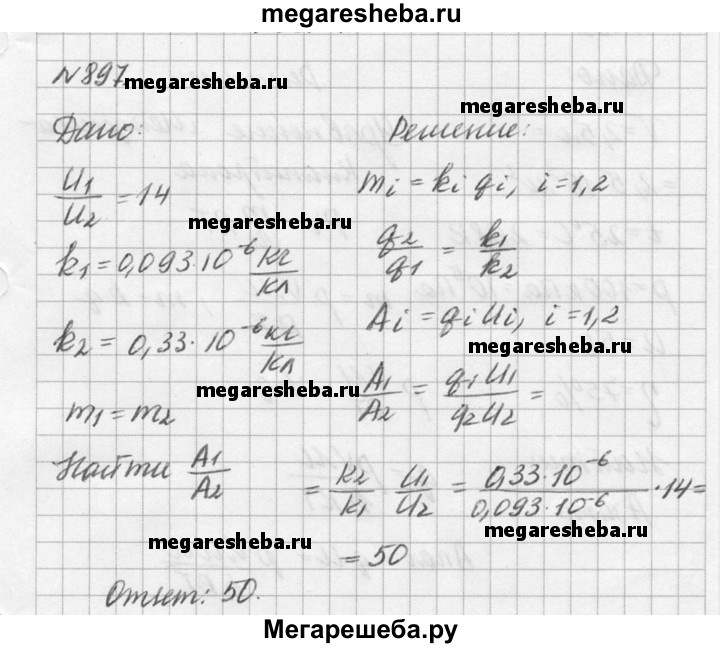 megaresheba.ru
№897
megaresheba.ru
megaresheba.ru
Дано:
Решение:
U1/U2 = 14
mi = ki qi, i = 1,2
megaresheba.ru
q2/q1 = k1/k2
k1 = 0,093·10^-6 кг/кл
Ai = qi Ui, i = 1,2
megaresheba.ru
k2 = 0,33·10^-6 кг/кл
megaresheba.ru
A1/A2 = q1 U1/q2 U2 =
m1 = m2
Найти A1/A2
= k2/k1 U1/U2 = 0,33·10^-6/0,093·10^-6 ·14 =
megaresheba.ru
megaresheba.ru
= 50
Ответ: 50.
Мегарешеба.ру